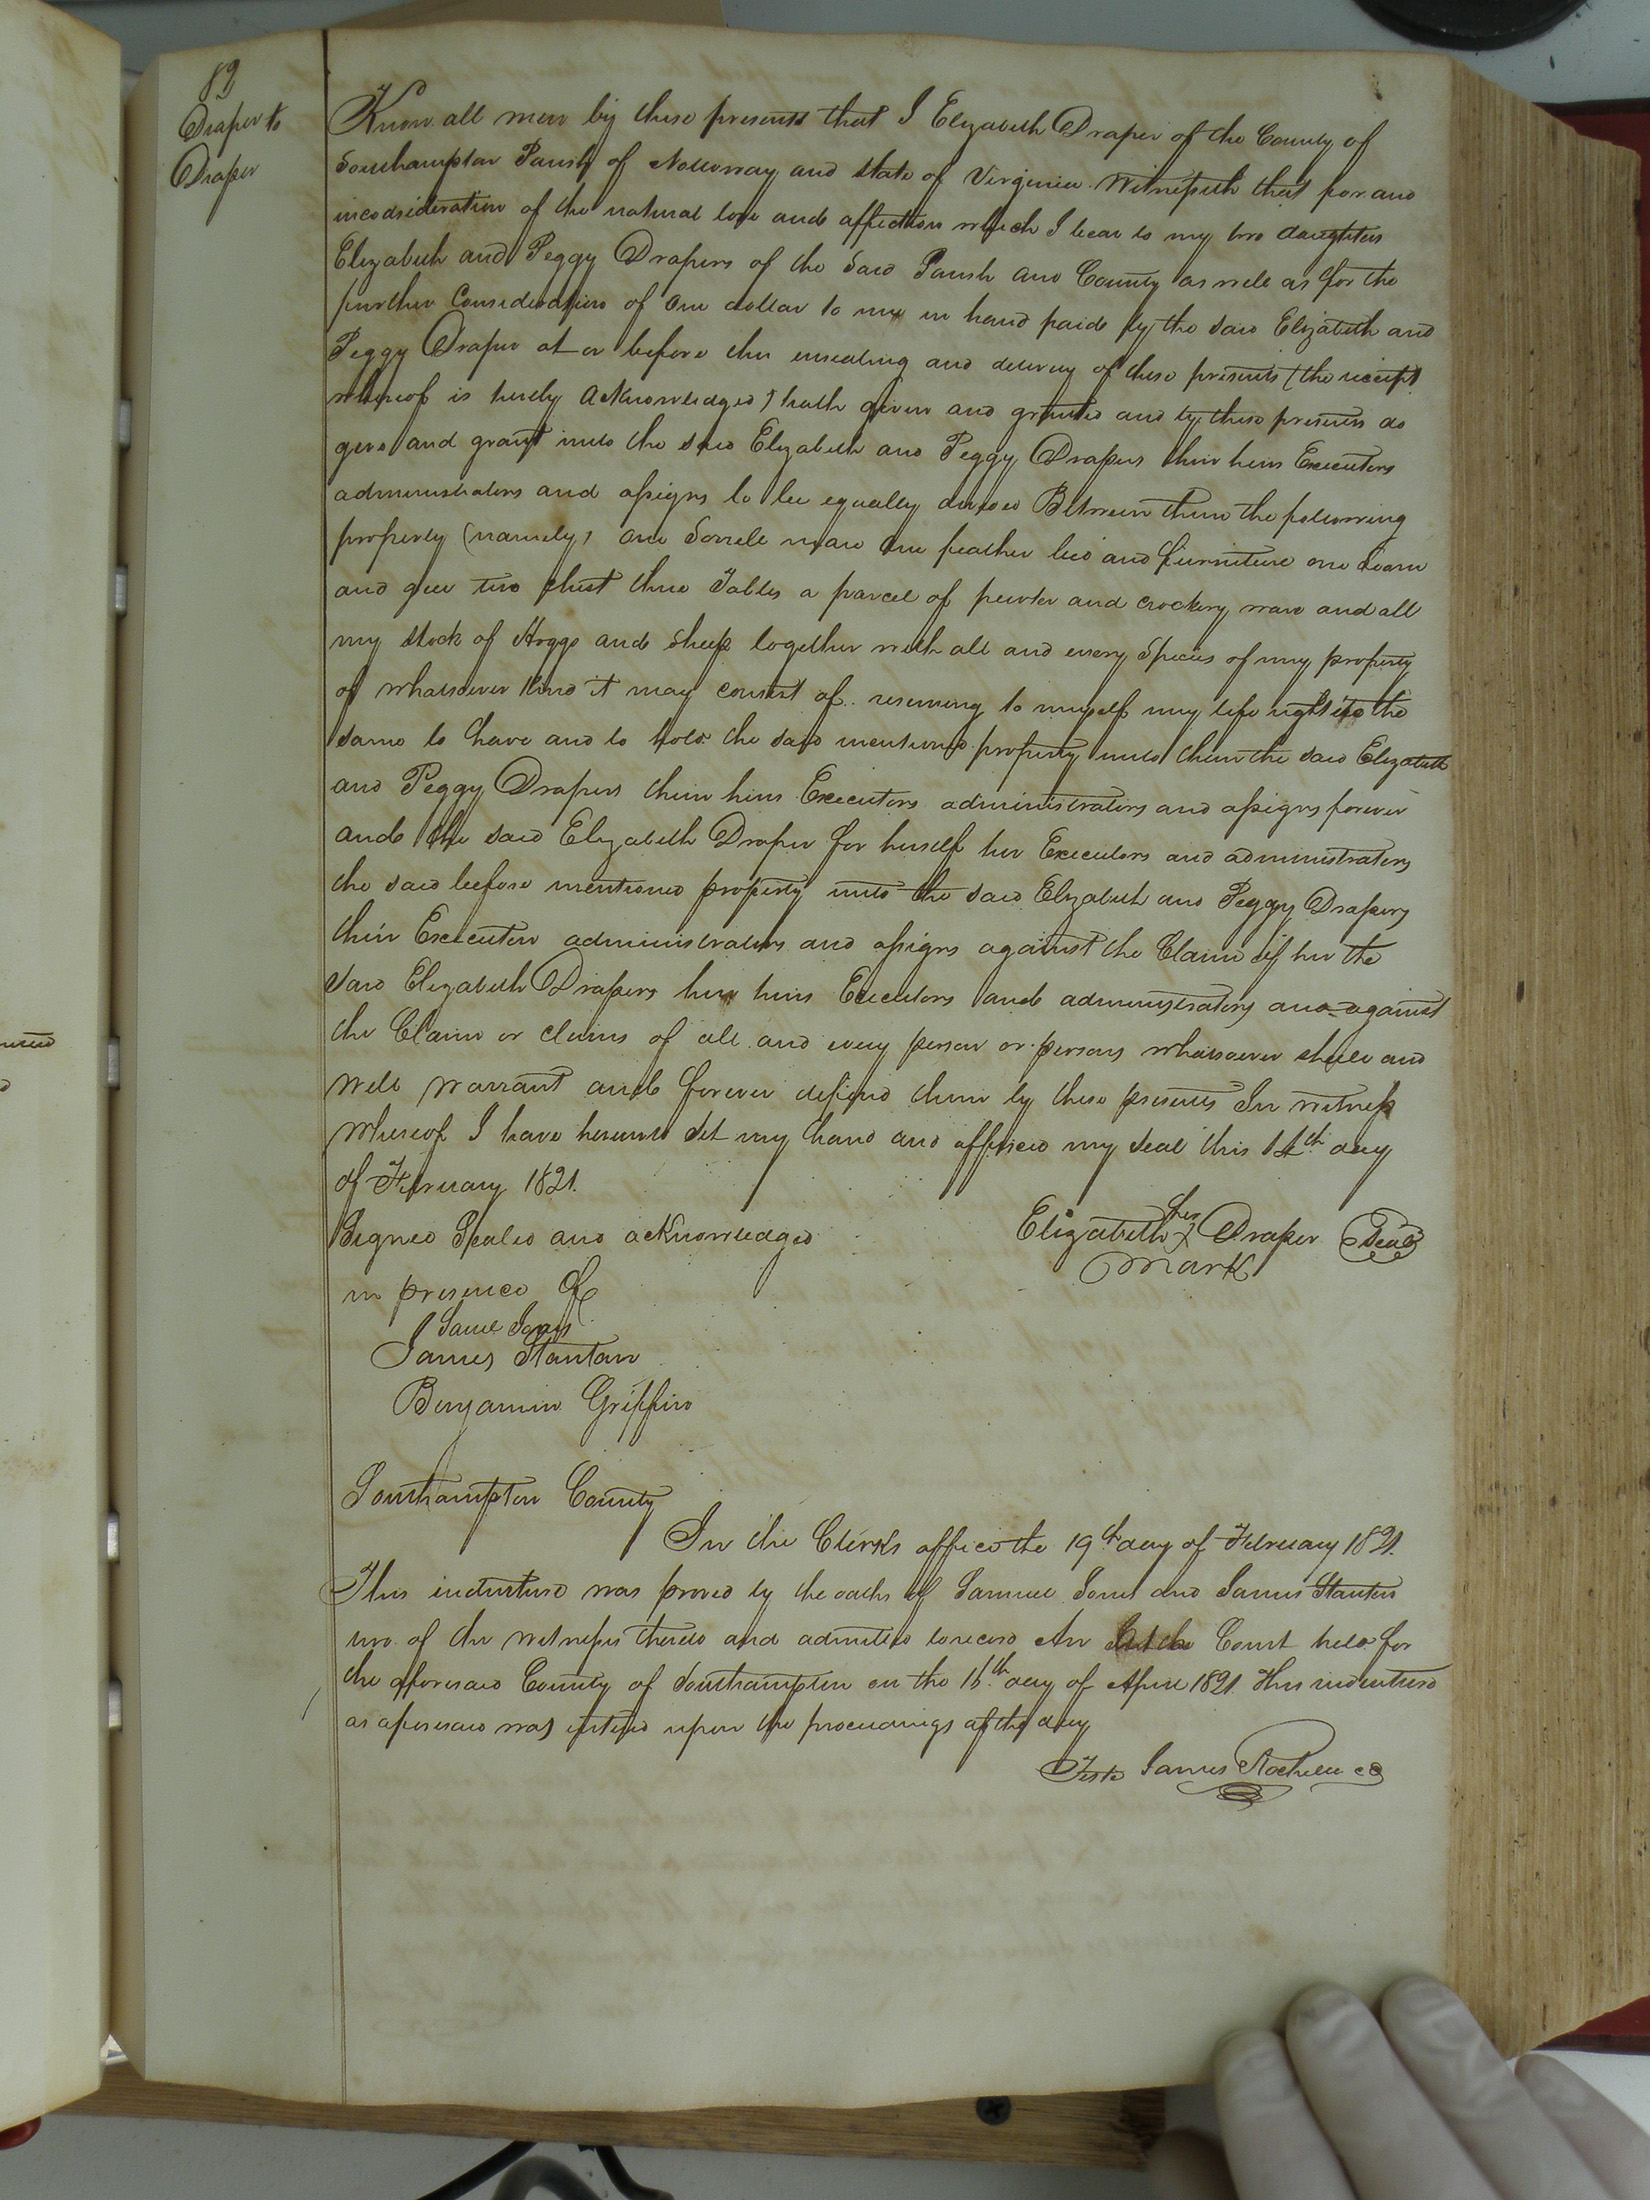 82
Draper to
Draper
Know all men by these presents that I Elizabeth Draper of the County of
Southampton Parish of Nottoway and State of Virginia Witnesseth that for and
in codsideration of the natural love and affection which I bear to my two daughters
Elizabeth and Peggy Drapers of the said Parish and County as well as for the
further Consideration of One dollar to me in hand paid by the said Elizabeth and
Peggy Draper at or before the ensealing and delivery of these presents (the receipt
whereof is hereby acknowledged) hath given and granted and by these presents do
give and grant unto the said Elizabeth and Peggy Drapers their heirs Executors
administrators and assigns to be equally divided Between them the following
property (namely) One Sorrell mare One feather bed and furniture one Loom
and gee two chest three Tables a parcel of pewter and crockery ware and all
my stock of Hoggs and Sheep together with all and every Species of my property
of whatsoever kind it may consist of reserving to myself my life right to the
same to have and to hold the said mentioned property unto them the said Elizabeth
and Peggy Drapers their heirs Executors administrators and assigns forever
and the said Elizabeth Draper for herself her Executors and administrators
the said before mentioned property unto the said Elizabeth and Peggy Drapers
their Executors administrators and assigns against the Claim of her the
said Elizabeth Drapers her heirs Executors and administrators and against
the Claim or claims of all and every person or persons whatsoever shall and
will warrant and forever defend them by these presents In witness
whereof I have hereunto Set my hand and affixed my seal this 14th day
of February 1821.
Signed Sealed and acknowledged
in presence of
Elizabeth her X Draper Seal
mark
Saml
James Stanton
Benjamin Griffin
Southampton County
In the Clerks office the 19th day of February 1821.
This indenture was proved by the oaths of Samuel and James Stanton
two of the witnesses thereto and admitted to record And At the Court held for
the aforesaid County of Southampton on the 16th day of April 1821 This indenture
as aforesaid was entered upon the proceedings of the day
Teste James Rochelle cc